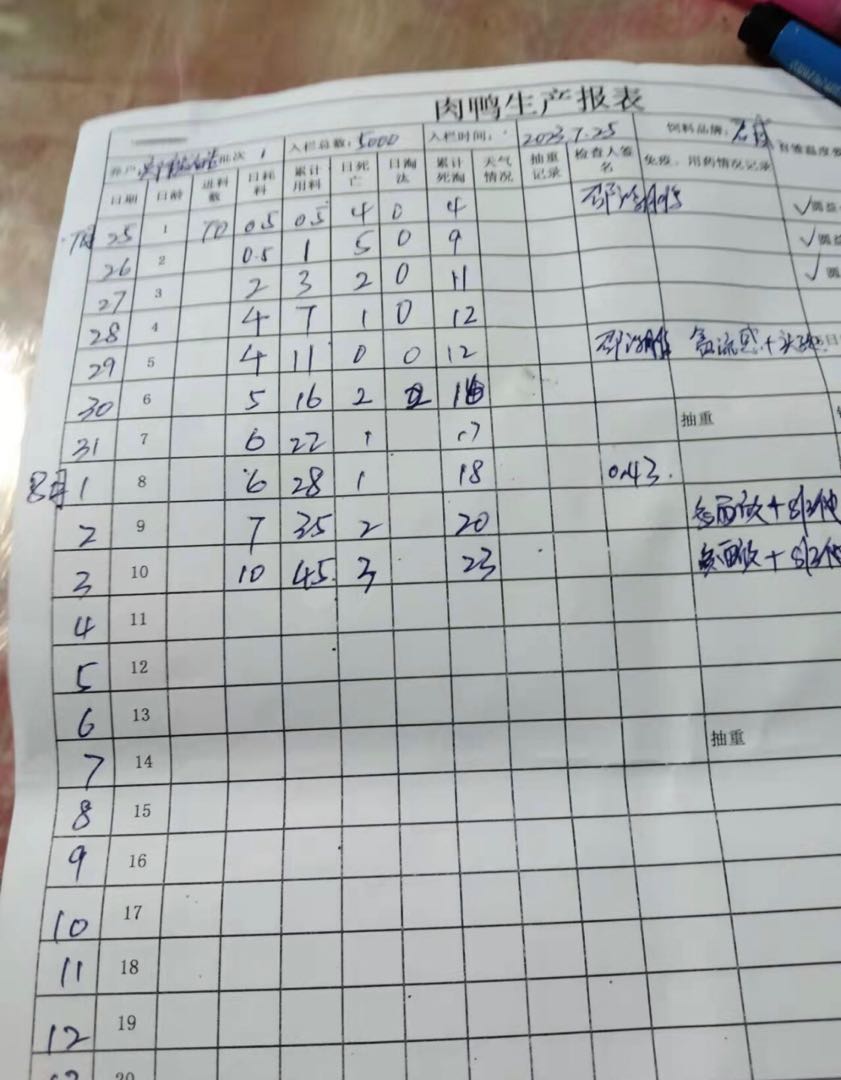 肉鸭生产报表
养户: 批次 1 入栏总数: 5000 入栏时间: 2023.7.25 饲料品牌:
日期 日龄 进料数 日耗料 累计用料 日死亡 日淘汰 累计死淘 天气情况 抽重记录 检查人签名 免疫、用药情况记录
7月 25 1 70 0.5 0.5 4 0 4
26 2 0.5 1 5 0 9
27 3 2 3 2 0 11
28 4 4 7 1 0 12
29 5 4 11 0 0 12
30 6 5 16 2 2 16
抽重
31 7 6 22 1 17
8月 1 8 6 28 1 18 0.43.
2 9 7 35 2 20
3 10 10 45 3 23
4 11
5 12
6 13
抽重
7 14
8 15
9 16
10 17
11 18
12 19
20